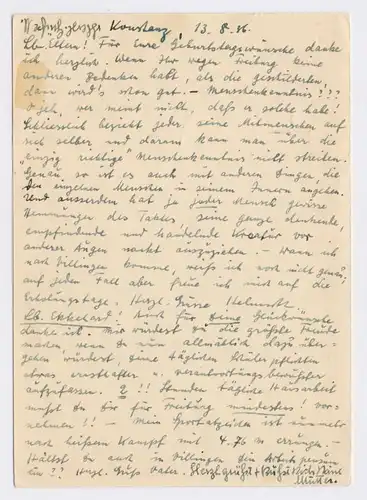 Konstanz, 13.8.46.
Lb. Eltern! Für Eure Geburtstagswünsche danke
ich herzlich. Wenn Ihr wegen Freiburg keine
anderen Bedenken habt, als die geschilderten,
dann wird's schon gut. – Menschenkenntnis???
O jeh, wer meint nicht, daß er solche habe!
Schliesslich bezieht jeder seine Mitmenschen auf
sich selber und darum kann man über die
"einzig richtige" Menschenkenntnis nicht streiten.
Genau so ist es auch mit anderen Dingen, die
den einzelnen Menschen in seinem Innern angehen.
Und ausserdem hat ja jeder Mensch gewisse
Hemmungen des Taktes, seine ganze denkende,
empfindende und handelnde Kreatur vor
anderer Augen nackt auszuziehen. – Wann ich
nach Villingen komme, weiß ich noch nicht genau;
auf jeden Fall aber freue ich mich auf die
Erholungstage. Herzl. Grüsse Helmut
Lb. Ekkehard! Auch für Deine Glückwünsche
danke ich. Mir würdest Du die größte Freude
machen, wenn Du nun allmählich dazu über-
gehen würdest, Deine täglichen Schülerpflichten
etwas ernsthafter u. verantwortungsbewußter
aufzufassen. 2!!! Stunden tägliche Hausarbeit
mußt Du Dir für Freiburg mindestens! vor-
nehmen!! – Mein Sportabzeichen ist nunmehr
nach heißem Kampf mit 4.76 m errungen. –
Hältst Du auch in Villingen die
ein?? Herzl. Gruß Vater. Herzl. Grüße + Kuß
Mutter.